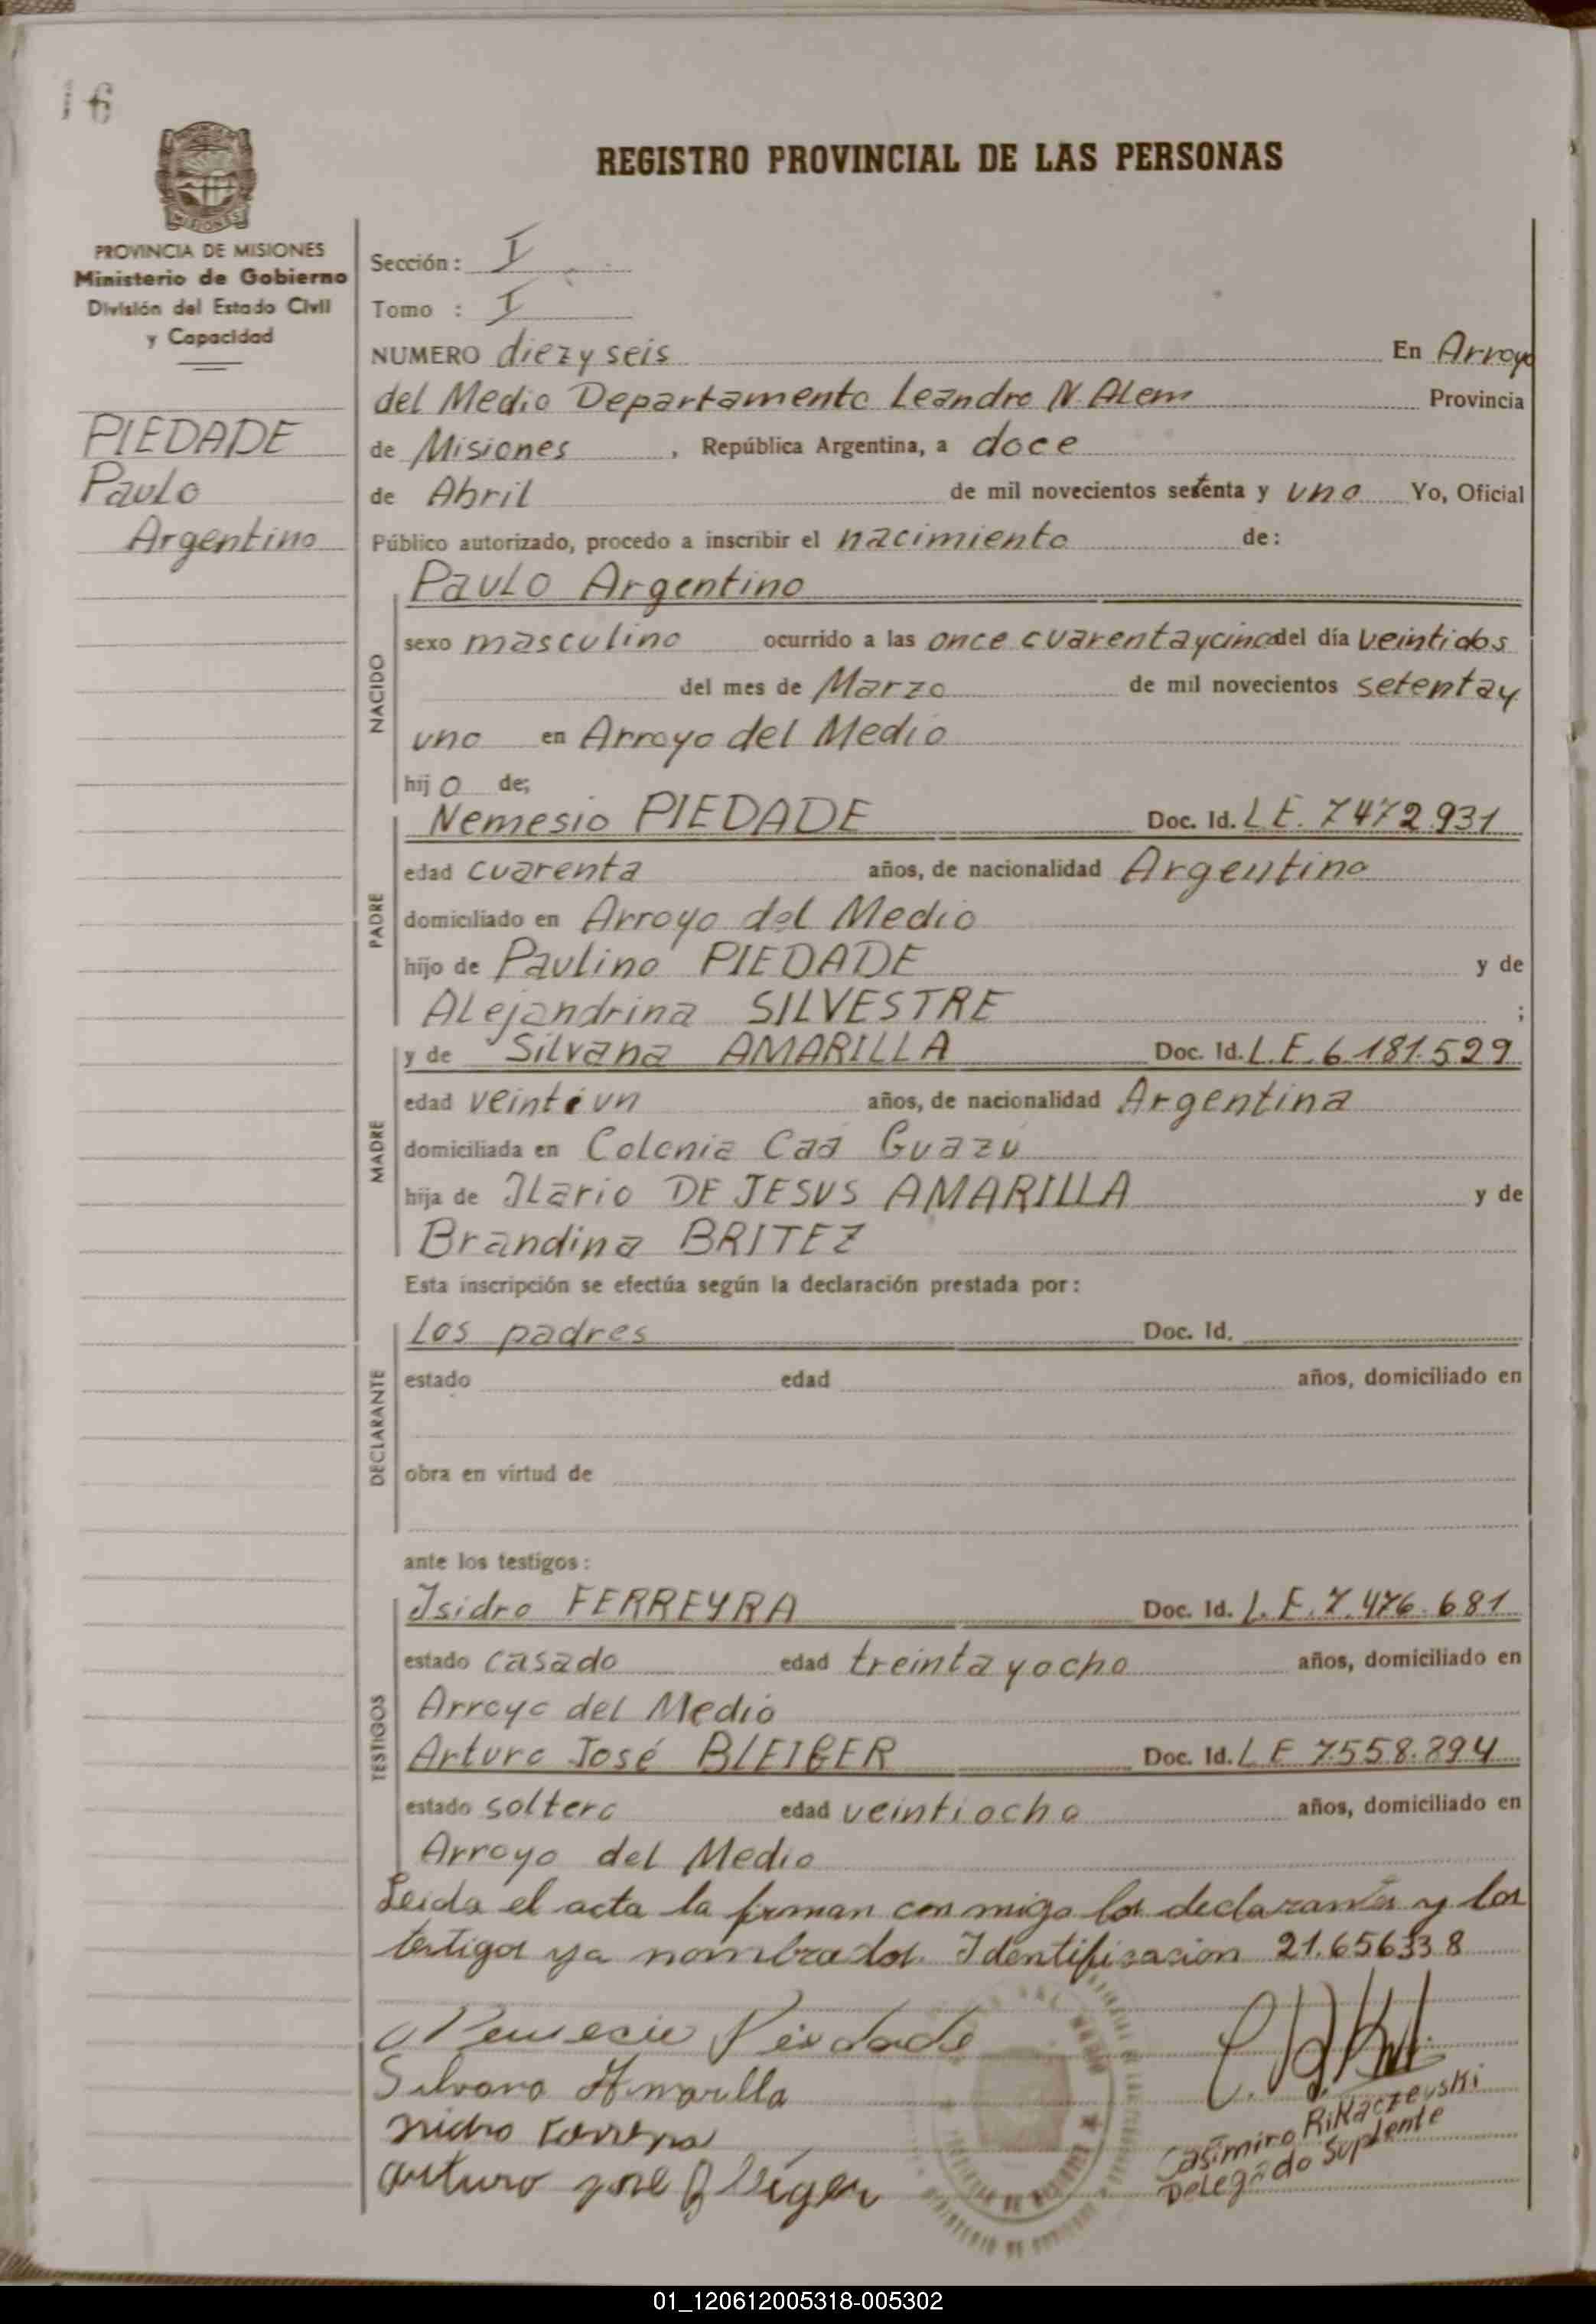 16
REGISTRO PROVINCIAL DE LAS PERSONAS
MISIONES
PROVINCIA DE MISIONES
Ministerio de Gobierno
División del Estado Civil
y Capacidad
PIEDADE
Paulo
Argentino
Sección: I
Tomo : I
NUMERO diez y seis En Arroyo
del Medio Departamento Leandro N. Alem Provincia
de Misiones, República Argentina, a doce
de Abril de mil novecientos setenta y uno Yo, Oficial
Público autorizado, procedo a inscribir el nacimiento de:
NACIDO
Paulo Argentino
sexo masculino ocurrido a las once cuarenta y cinco del día veintidos
del mes de Marzo de mil novecientos setenta y
uno en Arroyo del Medio
hijo de;
PADRE
Nemesio PIEDADE Doc. Id. L E. 7472.931
edad cuarenta años, de nacionalidad Argentino
domiciliado en Arroyo del Medio
hijo de Paulino PIEDADE y de
Alejandrina SILVESTRE ;
MADRE
y de Silvana AMARILLA Doc. Id. L.E. 6.181.529
edad veintiun años, de nacionalidad Argentina
domiciliada en Colonia Caá Guazú
hija de Ilario DE JESUS AMARILLA y de
Brandina BRITEZ
Esta inscripción se efectúa según la declaración prestada por:
DECLARANTE
Los padres Doc. Id.
estado edad años, domiciliado en
obra en virtud de
ante los testigos:
TESTIGOS
Isidro FERREYRA Doc. Id. L.E. 7.476.681
estado casado edad treinta y ocho años, domiciliado en
Arroyo del Medio
Arturo José BLEIGER Doc. Id. L E 7.558.894
estado soltero edad veintiocho años, domiciliado en
Arroyo del Medio
Leida el acta la firman conmigo los declarantes y los
testigos ya nombrados. Identificasion 21.656338
Nemesio Piedade
Silvana Amarilla
Arturo jose Bleiger
Casimiro Rikaczevski
Delegado Suplente
01_120612005318-005302